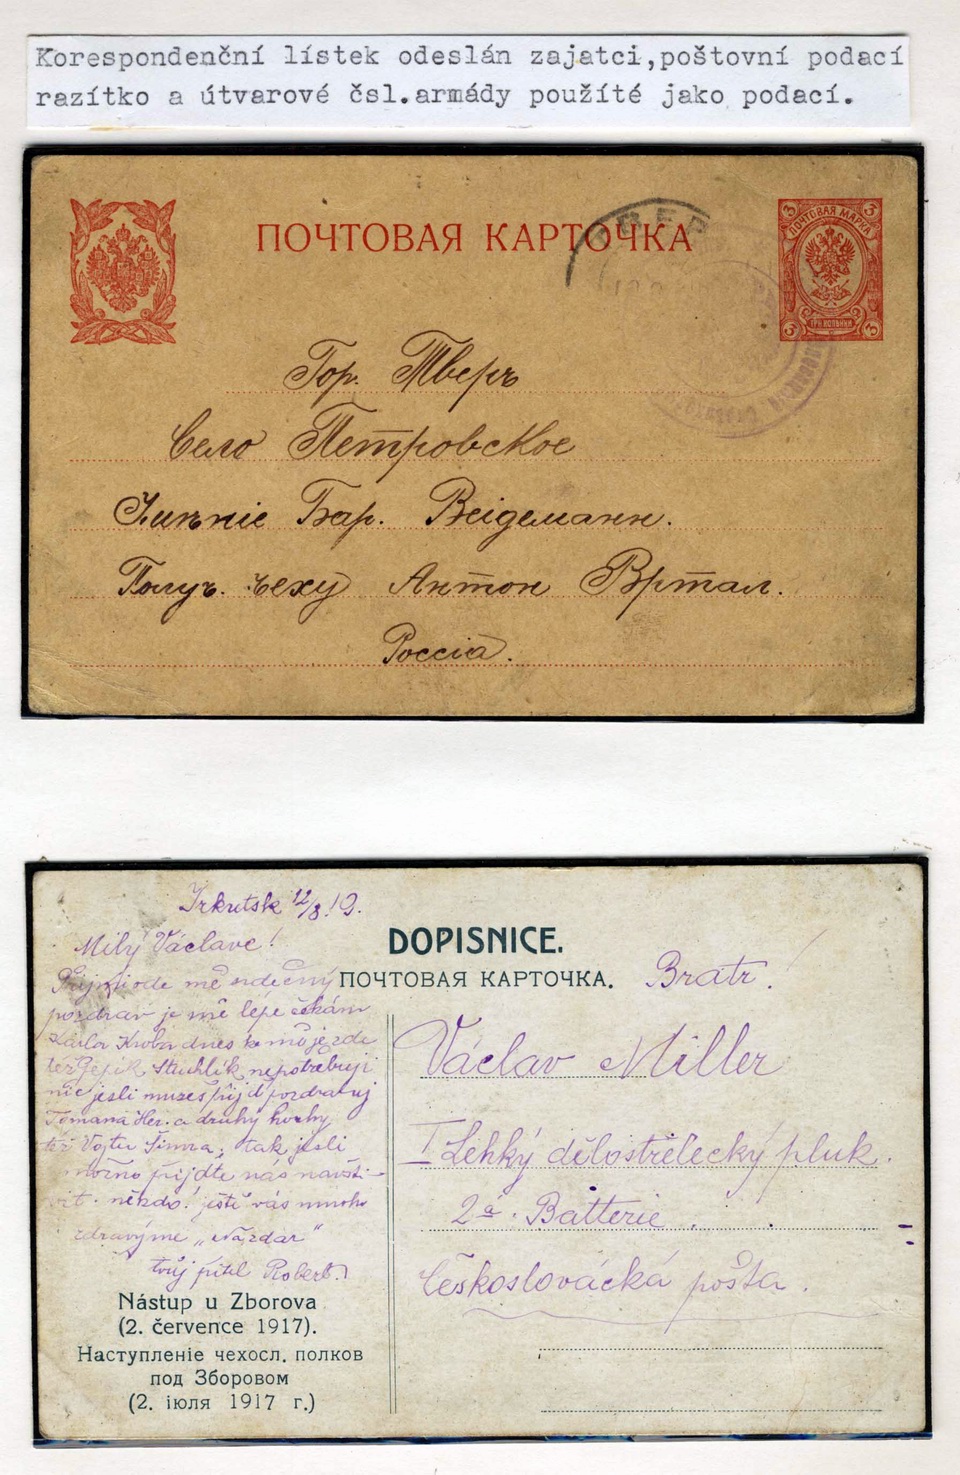 Korespondenční lístek odeslán zajatci,poštovní podací
razítko a útvarové čsl.armády použíté jako podací.
ПОЧТОВАЯ КАРТОЧКА
3 ПОЧТОВАЯ МАРКА 3
3 ТРИ КОПѢЙКИ 3
Гор. Тверь
Село Петровское
Имѣніе Бар. Веідеманн.
Получ. чеху Антон Вртал.
Россіа.
Irkutsk 12/8.19.
Milý Václave!
DOPISNICE.
ПОЧТОВАЯ КАРТОЧКА.
Přijmi ode mě srdečný
pozdrav je mě lépe čekám
Karla Kroba dnes ke mě jede
též Pepík Stuchlík, nepotřebuji
nic jesli muzeš přijď pozdravuj
Tomana Her. a druhý hochy
též Vojtu Šimra, tak jesli
možno přijdte nás navšti-
vit někdo! ještě vás mnoho
zdravýme „Nazdar"
tvůj přítel Robert.
Bratr!
Václav Miller
I Lehký dělostřelecký pluk.
2á. Batterie.
Československá pošta.
Nástup u Zborova
(2. července 1917).
Наступленіе чехосл. полков
под Зборовом
(2. іюля 1917 г.)